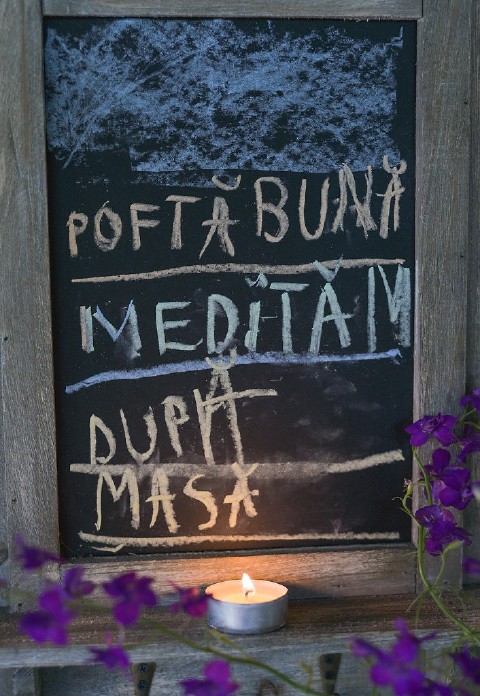 POFTĂ BUNĂ
MEDITĂM
DUPĂ
MASĂ